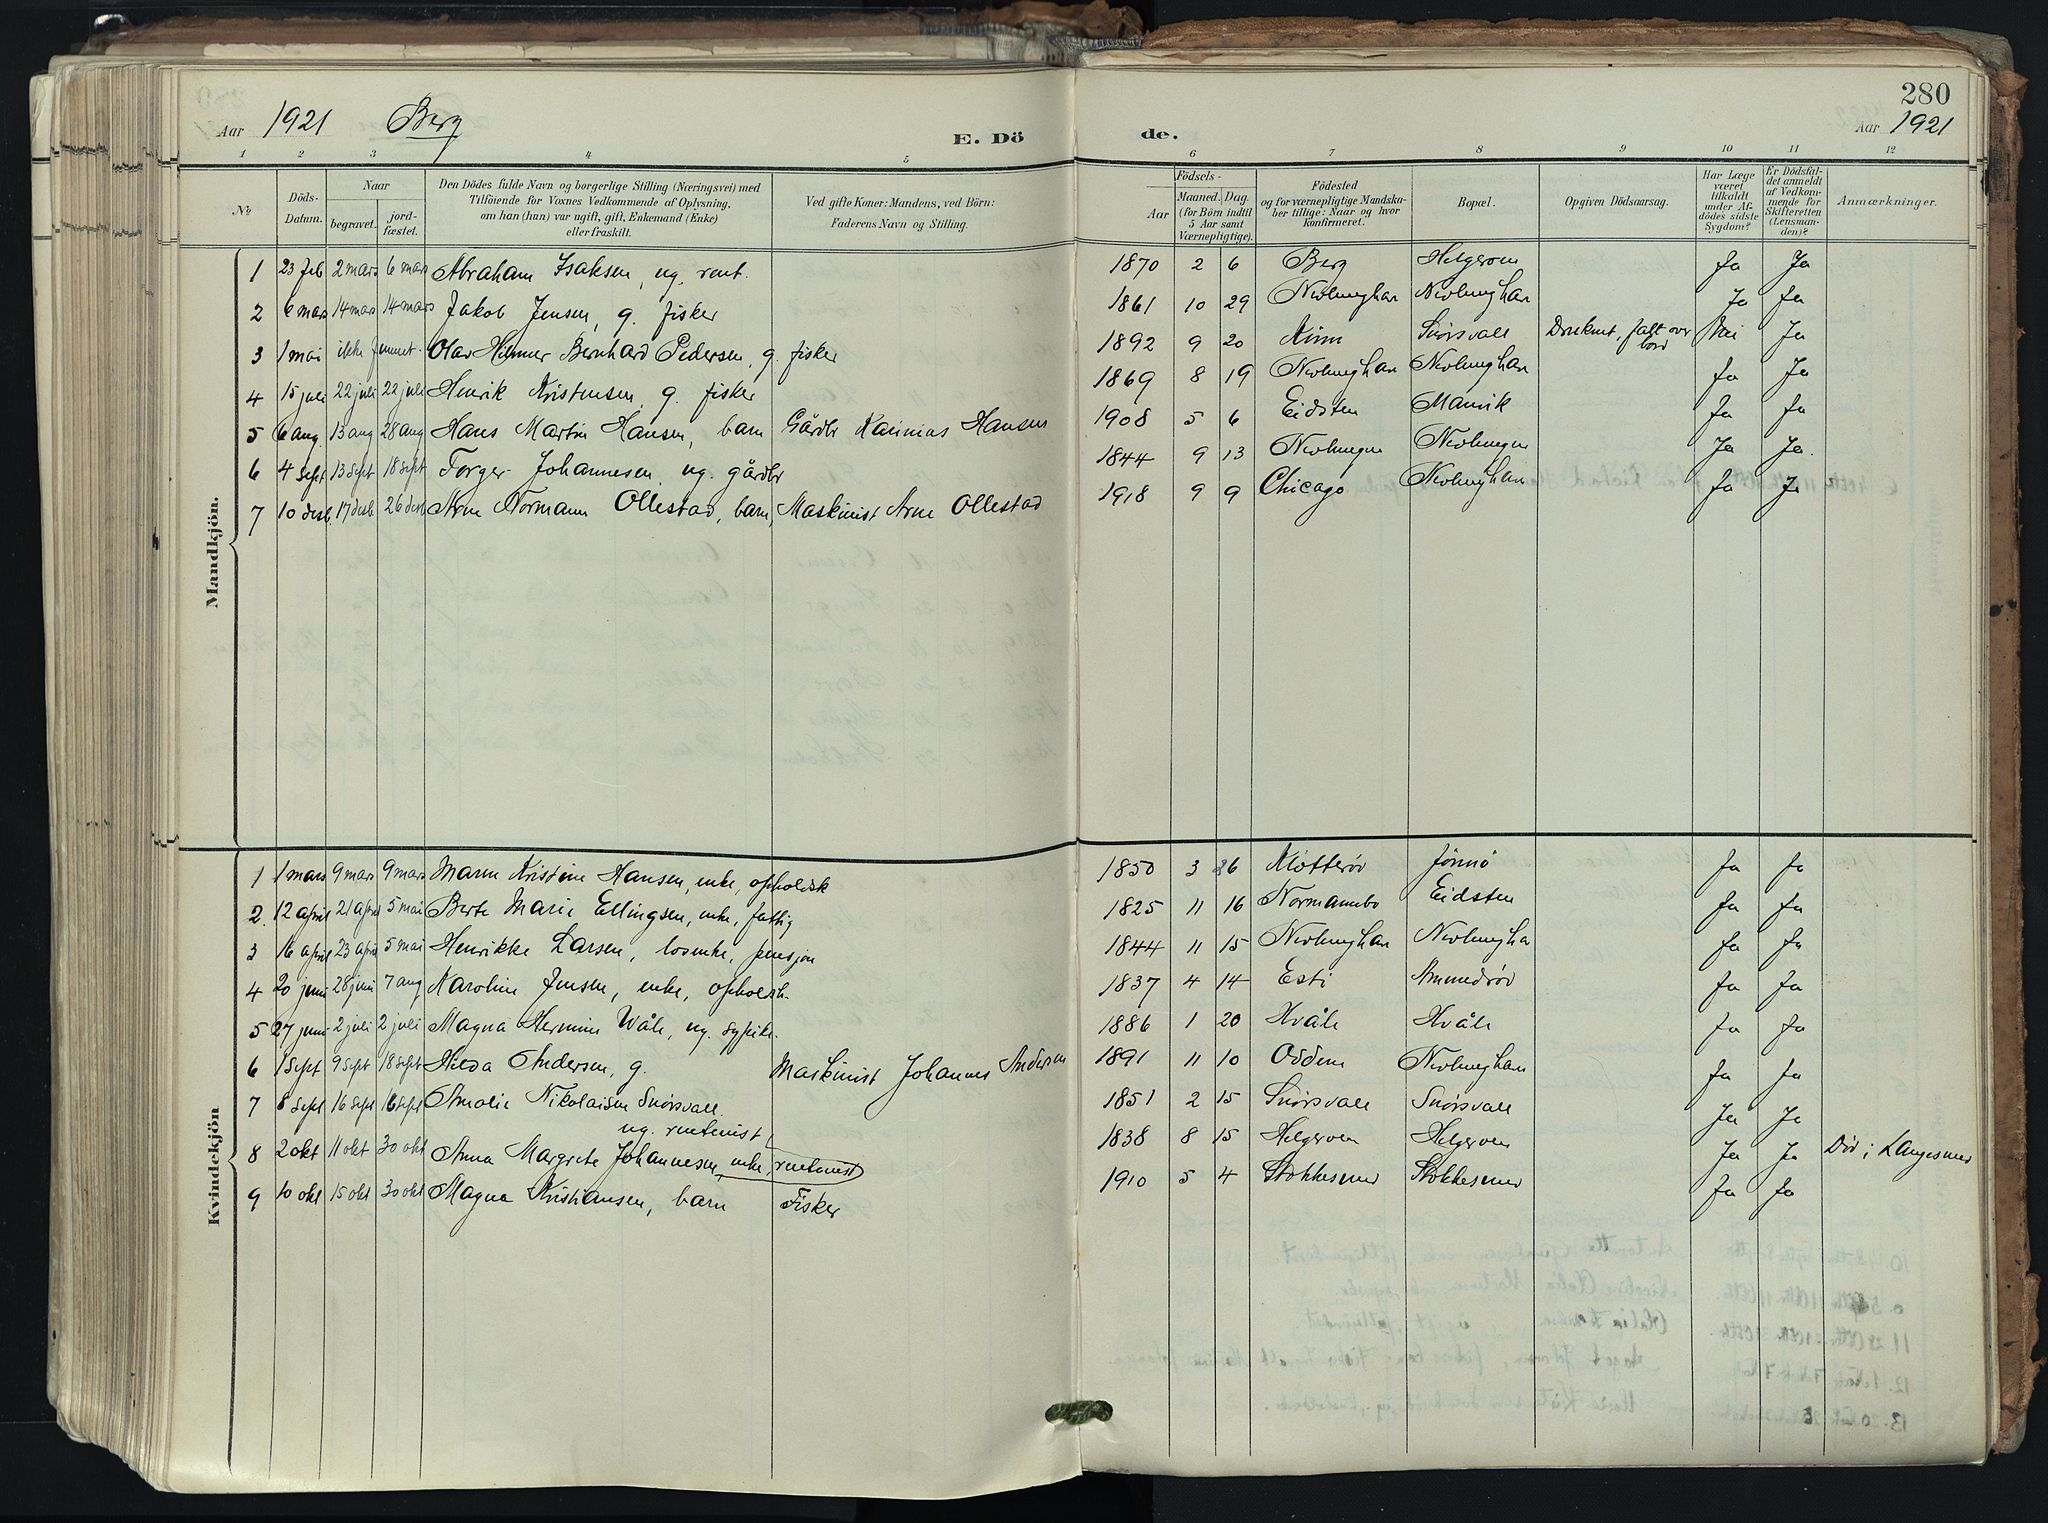 280
Aar 1921 Berg E. Dö de. Aar 1921
1 2 3 4 5 6 7 8 9 10 11 12
No
Döds-Datum.
Naar
begravet.
jord-fæstet.
Den Dödes fulde Navn og borgerlige Stilling (Næringsvei) med
Tilföiende for Voxnes Vedkommende af Oplysning,
om han (hun) var ugift, gift, Enkemand (Enke)
eller fraskilt.
Ved gifte Koner: Mandens, ved Börn:
Faderens Navn og Stilling.
Födsels-
Aar
Maaned. Dag.
(for Börn indtil
5 Aar samt
Værnepligtige).
Födested
og for værnepligtige Mandska-
ber tillige: Naar og hvor
konfirmeret.
Bopæl.
Opgiven Dödsaarsag.
Har Læge
været
tilkaldt
under Af-
dödes sidste
Sygdom?
Er Dödsfal-
det anmeldt
af Vedkom-
mende for
Skifteretten
(Lensman-
den)?
Anmærkninger.
Mandkjön.
1 23 feb 2 mars 6 mars Abraham Isaksen, ug. rent. 1870 2 6 Berg Helgeroen Ja Ja
2 6 mars 14 mars 14 mars Jakob Jensen, g. fisker 1861 10 29 Nevlunghan Nevlunghan Ja Ja
3 1 mai ikke funnet Olav Hilmer Bernhard Pedersen, g. fisker 1892 9 20 Kinn Snørsvall Druknet, falt over bord Nei Ja
4 15 juli 22 juli 22 juli Henrik Kristensen, g. fisker 1869 8 19 Nevlunghan Nevlunghan Ja Ja
5 6 aug 13 aug 28 aug Hans Martin Hansen, barn Gårdbr Hansen 1908 5 6 Eidsten Manvik Ja Ja
6 4 sept 13 sept 18 sept Torger Johannesen, ug. gårdbr 1844 9 13 Nevlungen Nevlungen Ja Ja.
7 10 desb. 17 desb. 26 desb. Arne Normann Ollestad, barn, Maskinist Arne Ollestad 1918 9 9 Chicago Nevlunghan Ja Ja
Kvindekjön
1 1 mars 9 mars 9 mars Maren Kristine Hansen, enke, opholdsk 1850 3 Kløtterød Jønnø Ja Ja
2. 12 april 21 april 5 mai Berte Marie Ellingsen, enke, fattig 1825 11 16 Normannbo Eidsten Ja Ja
3 16 april 23 april 5 mai Henrikke Larsen, losenke, pensjon 1844 11 15 Nevlunghan Nevlungha Ja Ja
4 20 juni 28 juni 7 aug Karoline Jensen, enke, opholdsk. 1837 4 14 Esti Ammedrød Ja Ja
5 27 juni 2 juli 2 juli Magna Hermine Wåle, ug. sypike. 1886 1 20 Hvåle Hvåle Ja Ja
6 1 sept 9 sept 18 sept Hilda Andersen, g. Maskinist Johannes Andersen 1891 11 10 Oddene Nevlunghan Ja Ja
7 8 sept 16 sept 16 sept Amalie Nikolaisen Snørsvall. 1851 2 15 Snørsvall Snørsvall Ja Ja
ug. rentenist
8 2 okt 11 okt 30 okt Anna Margrete Johannesen, enke, rentenist 1838 8 15 Helgeroen Helgeroen Ja Ja Død i Langesund
9 10 okt 15 okt 30 okt Magna Kristiansen, barn Fisker 1910 5 4 Stokkesund Stokkesund Ja Ja